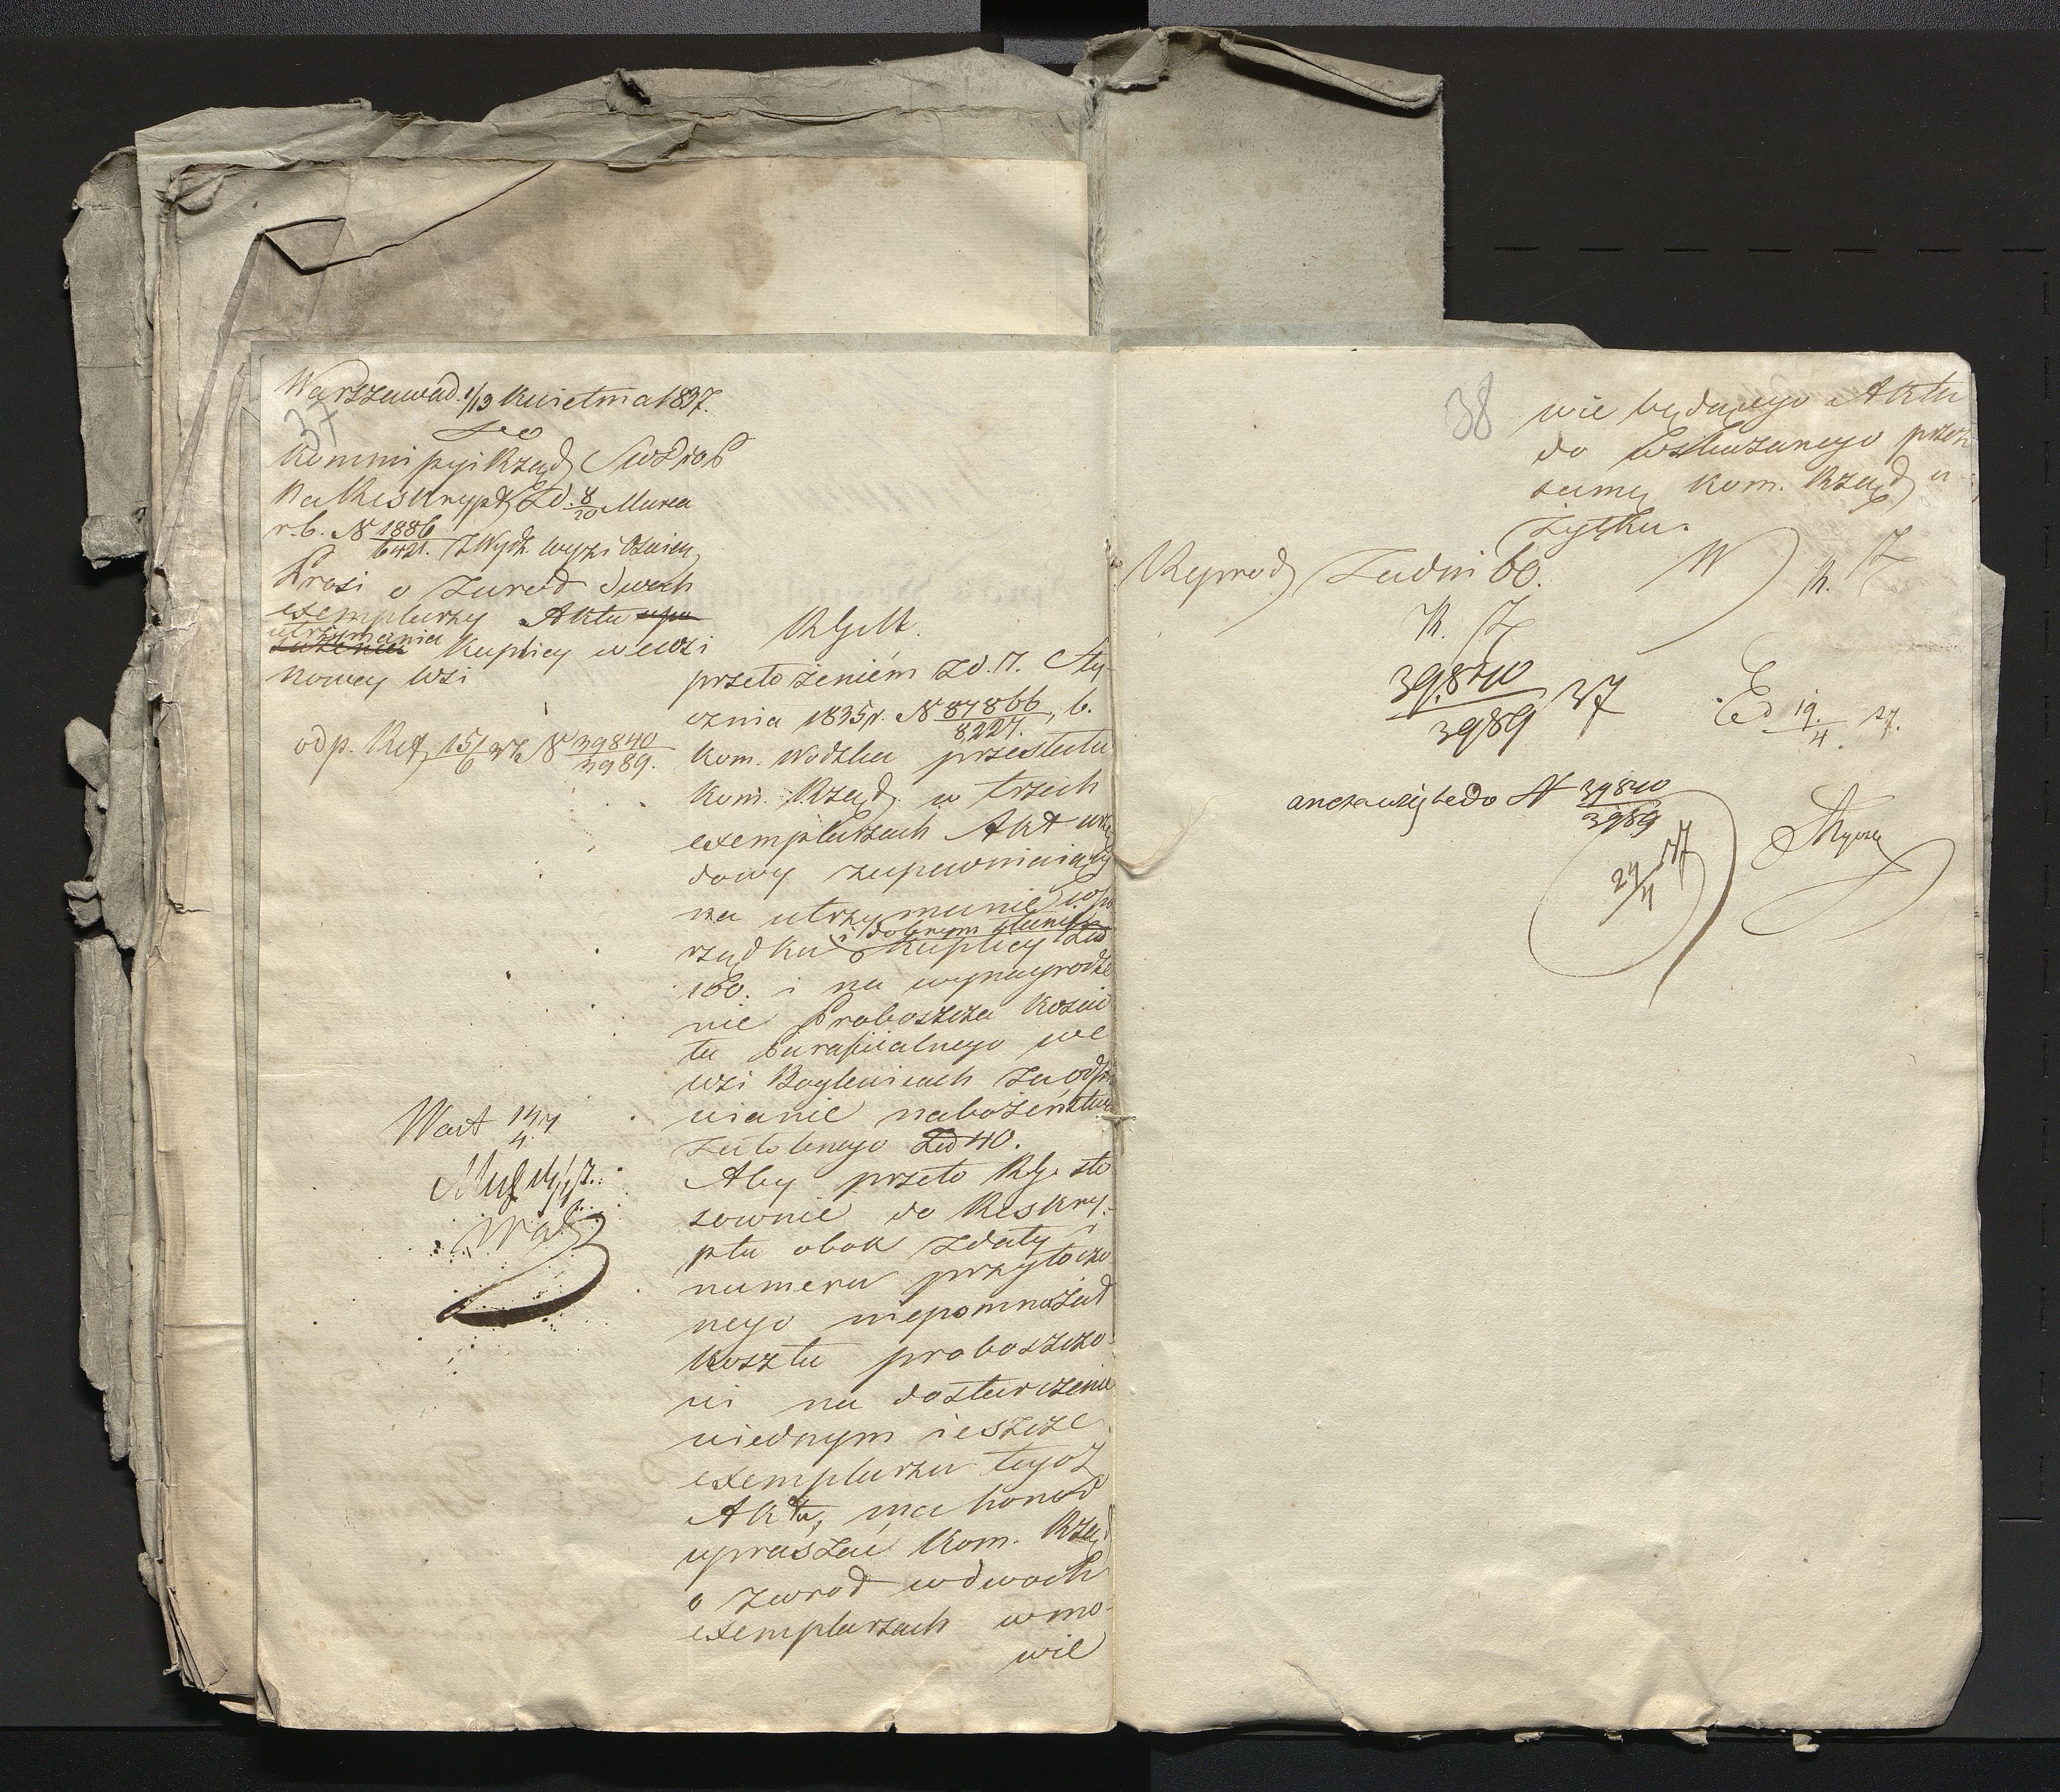 Warszawa d. 1/13 Kwietnia 1837.
37
Do
Kommissyi Rząd Sw
Na Reskrypt z d. 8/20 Marca
r. b. N 1886/6421. z Wydz. wyzn. Oświec.
Prosi o zwrot dwóch
exemplarzy Aktu
utrzymania Kaplicy we wsi
nowey Wsi
odp. Rst 15/6 37 N 39840/3989.
R G M.
przełożeniem z d. 17. Sty-
cznia 1835 r. N 87866/8,227., b.
Kom. Wodzka przesłała
Kom. Rząd w trzech
exemplarzach Akt urzę
dowy zapewniaiący
na utrzymanie w po
i dobrym stanie
rządku Kaplicy Zł
160. i na wynagrodze
nie Proboszcza Kościo
ła Parafialnego we
wsi Boglewicach za odpra
wianie nabożeństwa
żałobnego Zł 40.
Aby przeto RG sto
sownie do Reskry-
ptu obok z daty i
numeru przytoczo
nego niepomnażał
kosztu proboszczo-
wi na dostarczenie
w iednym ieszcze
exemplarzu tegoż
Aktu, ma honor
upraszać Kom. Rząd
o zwrot w dwóch
exemplarzach w mo-
wie
Wart 14/4
38
wie będącego Aktu
do wskazanego przez
samą Kom. Rząd u-
żytku.
Reprod Za dni 60.
39,840/3989 37
Ed 19/4. 37.
N 39840/3989
24/4 37